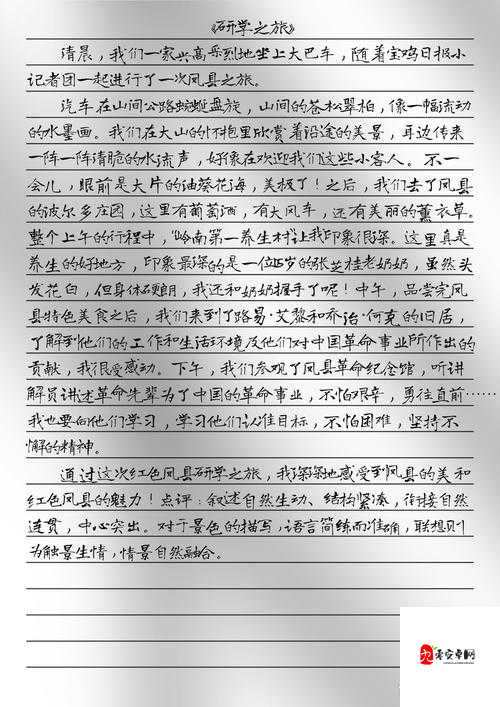 《研学之旅》
清晨，我们一家兴高采烈地坐上大巴车，随着宝鸡日报小
记者团一起进行了一次凤县之旅。
汽车在山间公路蜿蜒盘旋，山间的苍松翠柏，像一幅流动
的水墨画。我们在大山的怀抱里欣赏着沿途的美景，耳边传来
一阵一阵清脆的水流声，好像在欢迎我们这些小客人。不一
会儿，眼前是大片的油葵花海，美极了！之后，我们去了凤县
的波尔多庄园，这里有葡萄酒，有大风车，还有美丽的薰衣草。
整个上午的行程中，“岭南第一养生村”让我印象很深。这里真是
养生的好地方，印象最深的是一位 岁的张芝桂老奶奶，虽然头
发花白，但身体硬朗，我还和奶奶握手了呢！中午，品尝完凤
县特色美食之后，我们来到了路易·艾黎和乔治·何克的旧居，
了解到他们的工作和生活环境及他们对中国革命事业所作出的
贡献，我很受感动。下午，我们参观了凤县革命纪念馆，听讲
解员讲述革命先辈为了中国的革命事业，不怕艰辛，勇往直前……
我也要向他们学习，学习他们认准目标，不怕困难，坚持不
懈的精神。
通过这次红色凤县研学之旅，我深深地感受到凤县的美和
红色凤县的魅力！点评：叙述自然生动、结构紧凑，衔接自然
连贯，中心突出。对于景色的描写，语言简练而准确，联想则
为触景生情，情景自然融合。